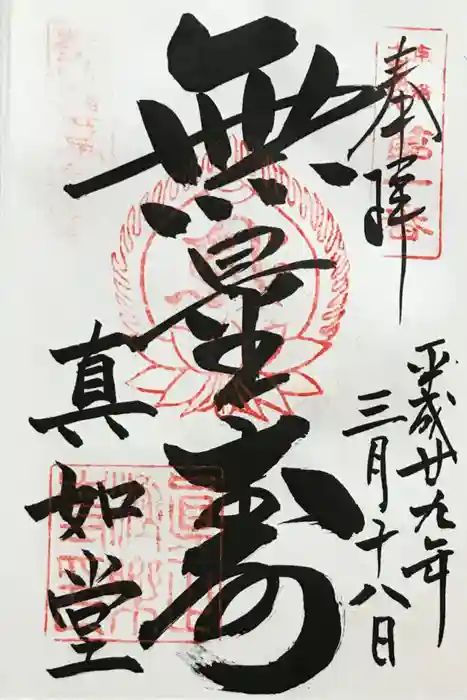 奉拝
平成廿九年
三月十八日
無量寿
真如堂